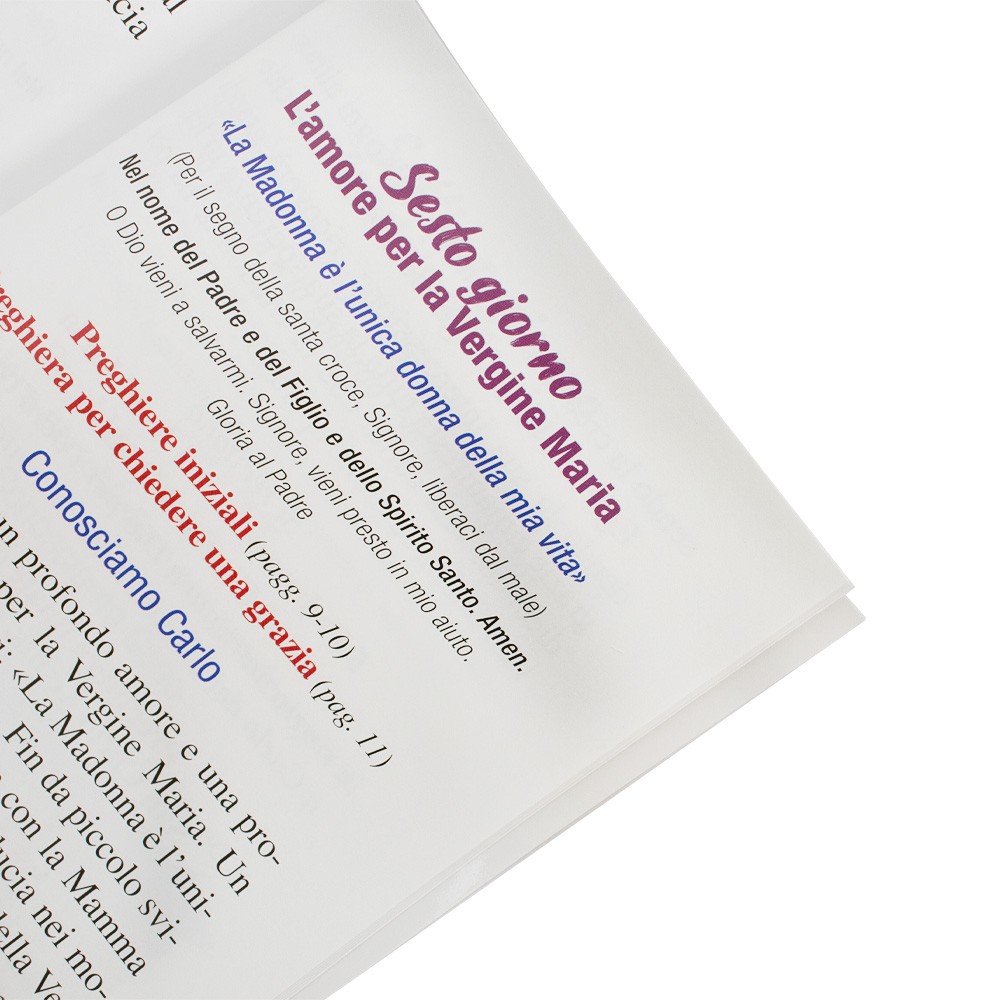 cia
Sesto giorno
L'amore per la Vergine Maria
«La Madonna è l'unica donna della mia vita»
(Per il segno della santa croce, Signore, liberaci dal male)
Nel nome del Padre e del Figlio e dello Spirito Santo. Amen.
O Dio vieni a salvarmi. Signore, vieni presto in mio aiuto.
Gloria al Padre
Preghiere iniziali (pagg. 9-10)
reghiera per chiedere una grazia (pag. 11)
Conosciamo Carlo
un profondo amore e una pro-
per la Vergine Maria. Un
«La Madonna è l'uni-
Fin da piccolo svi-
con la Mamma
ucia nei mo-
della Ve